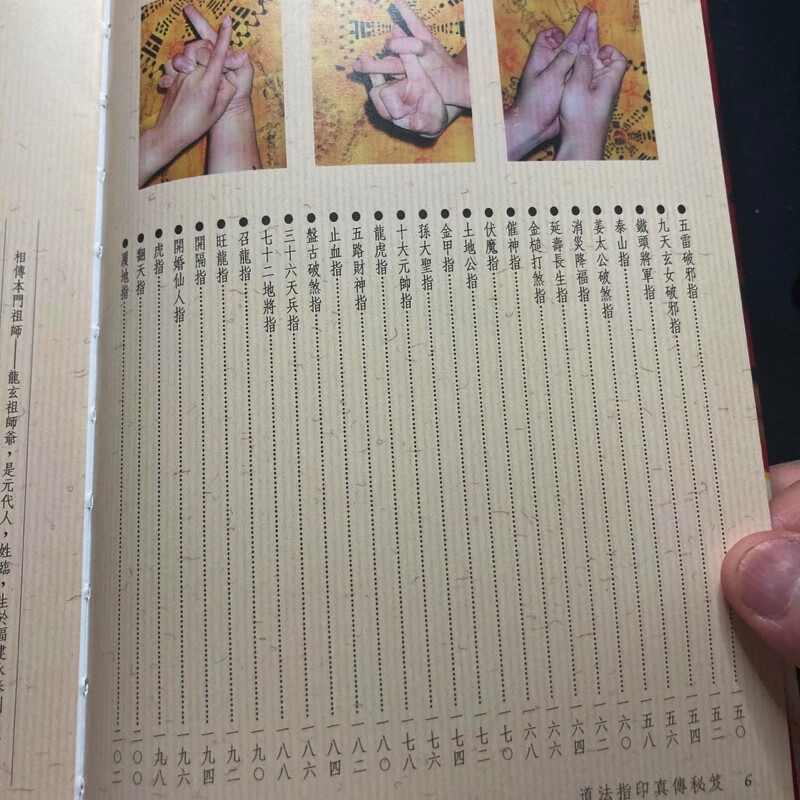 五雷破邪指……一五〇
九天玄女破邪指……一五二
鐵頭將軍指……一五四
泰山指……一五六
姜太公破煞指……一五八
消災降福指……一六〇
延壽長生指……一六二
金槌打煞指……一六四
催神指……一六六
伏魔指……一六八
土地公指……一七〇
金甲指……一七二
孫大聖指……一七四
十大元帥指……一七六
龍虎指……一七八
五路財神指……一八〇
止血指……一八二
盤古破煞指……一八四
三十六天兵指……一八六
七十二地將指……一八八
召龍指……一九〇
旺龍指……一九二
開隔指……一九四
開婚仙人指……一九六
虎指……一九八
翻天指……二〇〇
覆地指……二〇二
道法指印真傳秘笈 6
相傳本門祖師——龍玄祖師爺，是元代人，姓臨，生於福建